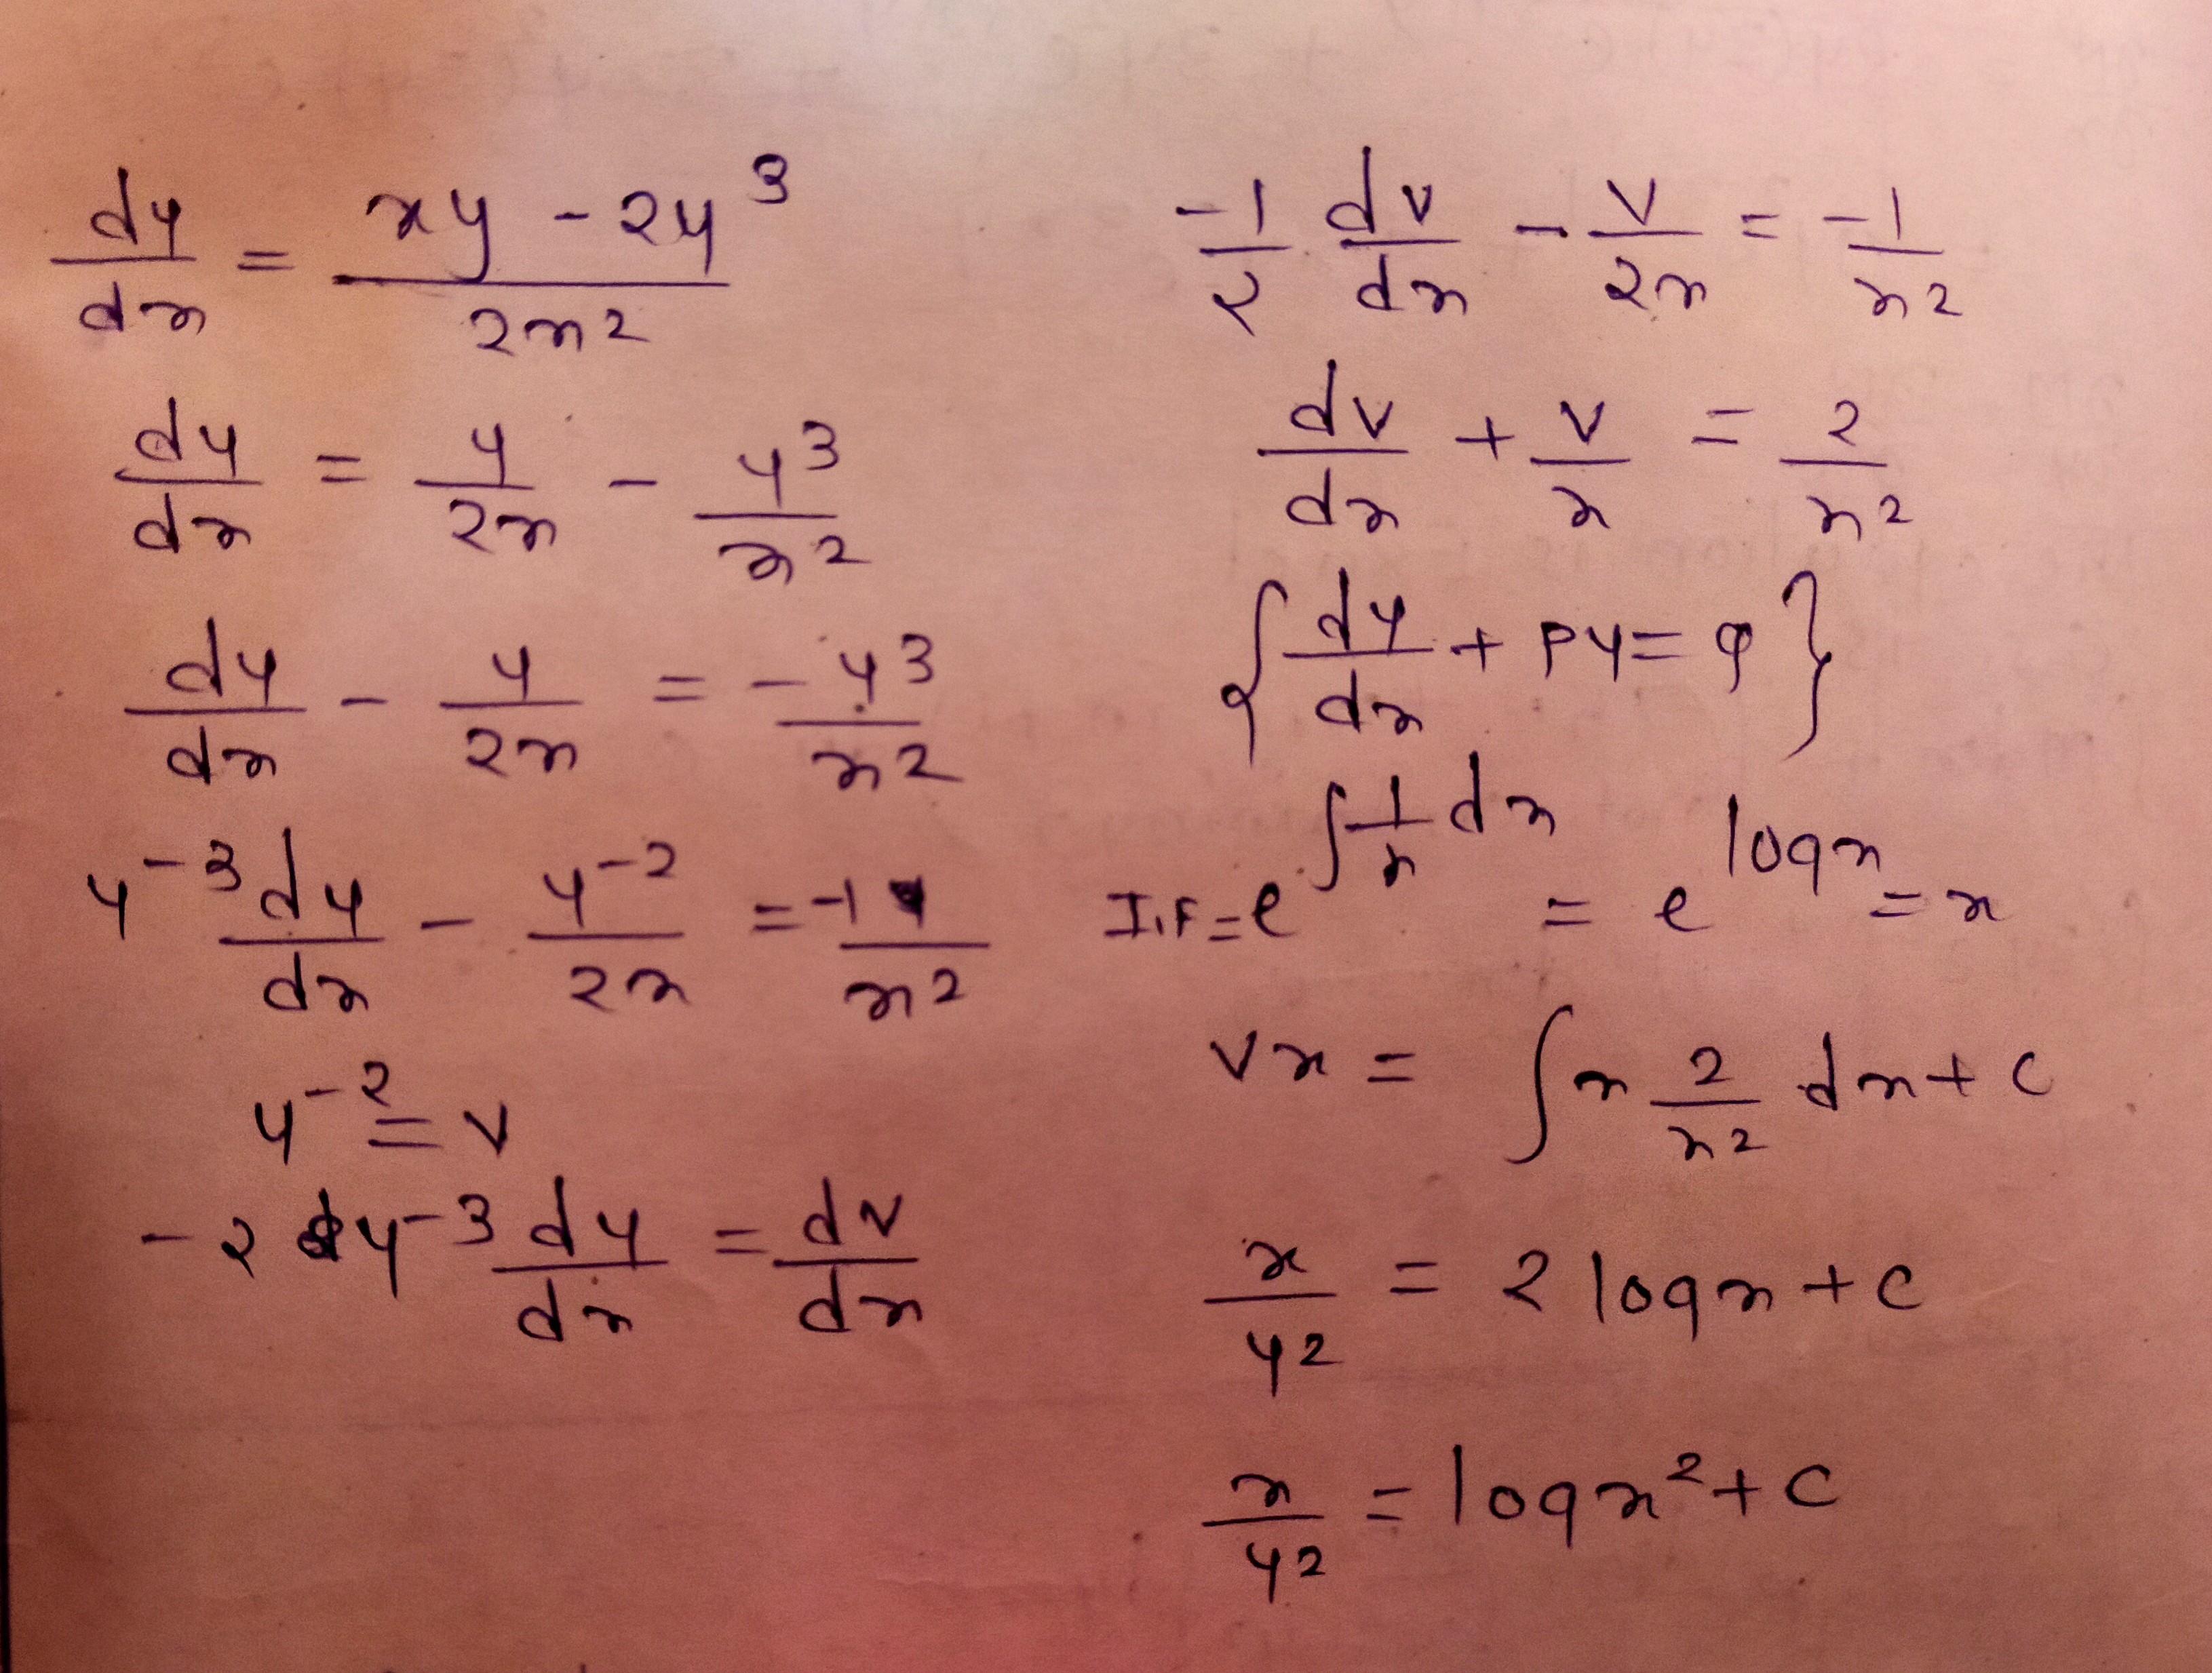 dy/dx = (xy - 2y³)/(2x²)
dy/dx = y/(2x) - y³/x²
dy/dx - y/(2x) = -y³/x²
y⁻³ dy/dx - y⁻²/(2x) = -1/x²
y⁻² = v
-2 y⁻³ dy/dx = dv/dx
-1/2 dv/dx - v/(2x) = -1/x²
dv/dx + v/x = 2/x²
{dy/dx + Py = Q}
I.F = e^(∫ 1/x dx) = e^(log x) = x
vx = ∫ x 2/x² dx + c
x/y² = 2 log x + c
x/y² = log x² + c